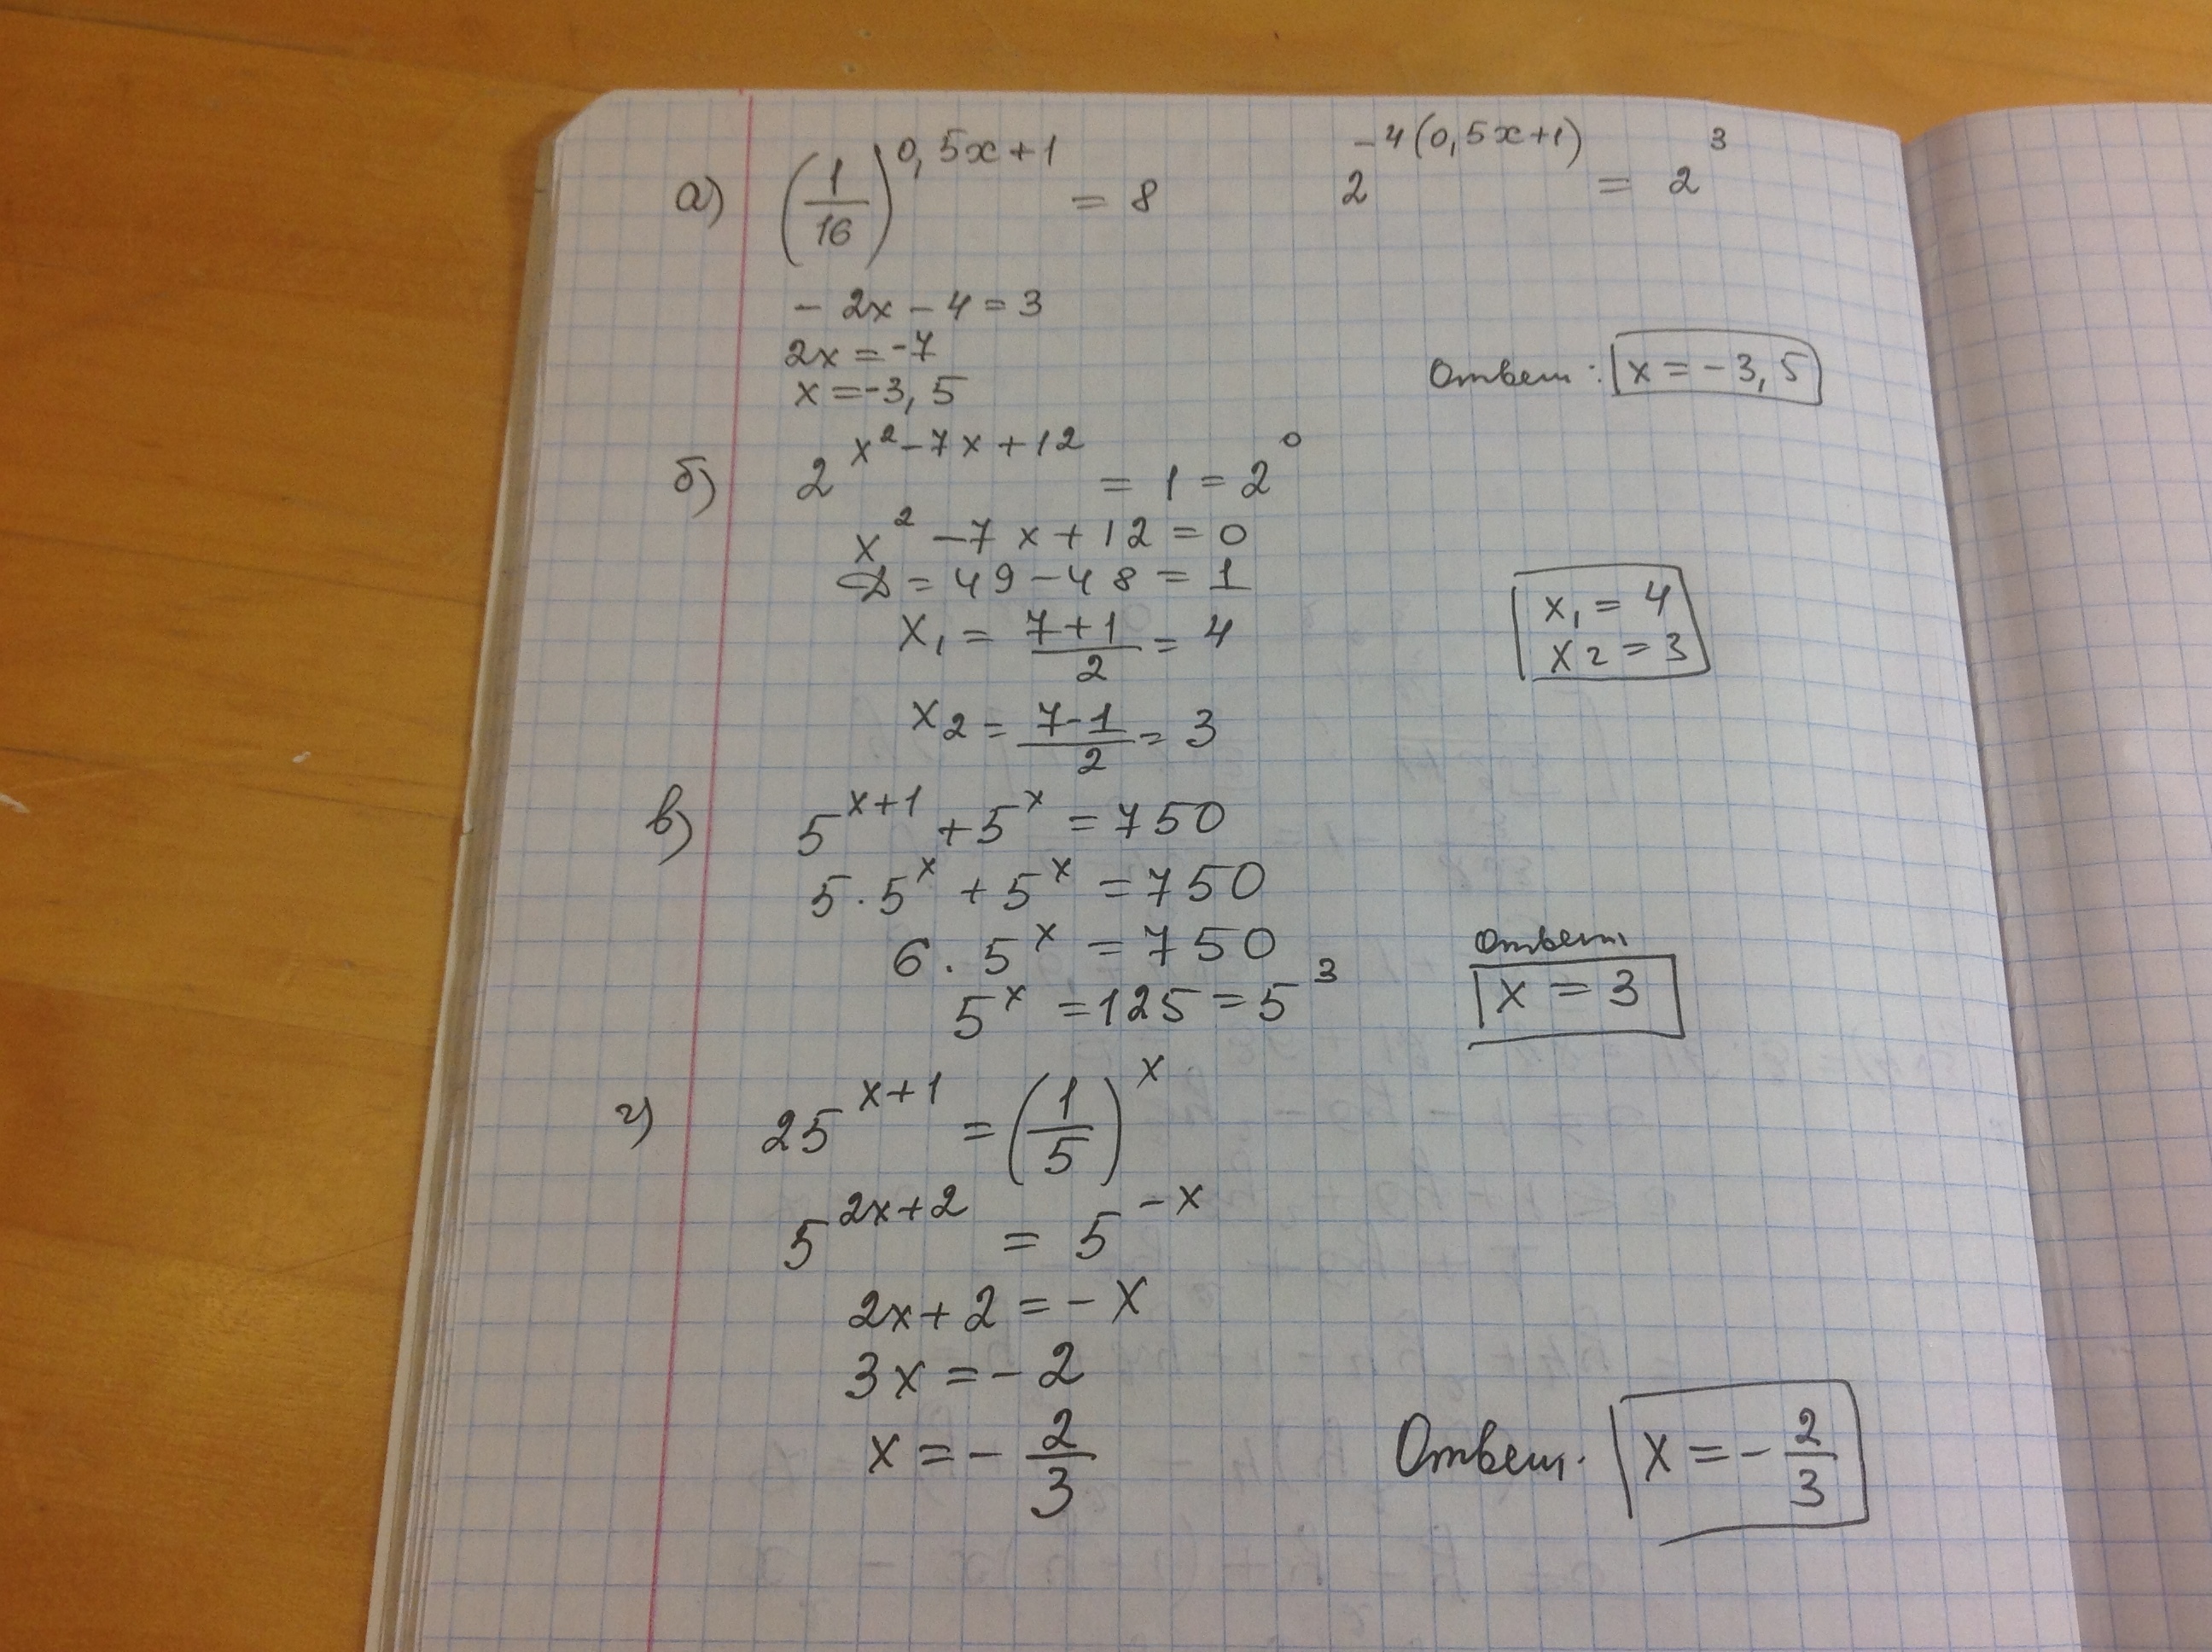 а) (1/16)^(0,5x+1) = 8   2^(-4(0,5x+1)) = 2^3
- 2x - 4 = 3
2x = -7
x = -3,5   Ответ: x = -3,5
б) 2^(x²-7x+12) = 1 = 2^0
x² - 7x + 12 = 0
D = 49 - 48 = 1
x₁ = (7+1)/2 = 4   x₁ = 4
x₂ = 3
x₂ = (7-1)/2 = 3
в) 5^(x+1) + 5^x = 750
5 · 5^x + 5^x = 750
6 · 5^x = 750   Ответ
5^x = 125 = 5^3   x = 3
г) 25^(x+1) = (1/5)^x
5^(2x+2) = 5^(-x)
2x + 2 = -x
3x = -2
x = -2/3   Ответ. x = -2/3